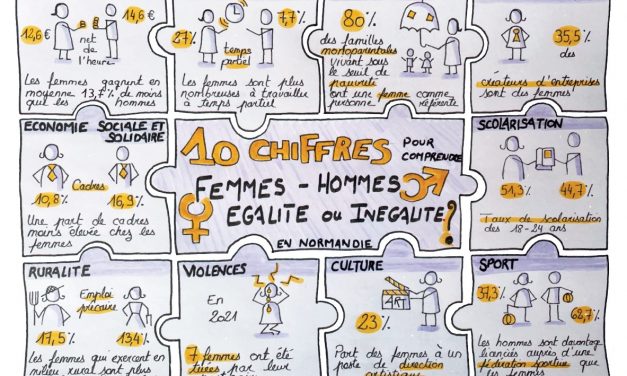 12,6€
14,6€
net
de
l'heure
Les femmes gagnent en
moyenne 13,7% de moins
que les hommes
27%
7,7%
temps
partiel
Les femmes sont plus
nombreuses à travailler
à temps partiel
80%
des familles
monoparentales
vivant sous
le seuil de
pauvreté
ont une femme comme
personne référente
35,5%
des
créateurs d'entreprises
sont des femmes
ECONOMIE SOCIALE ET
SOLIDAIRE
Cadres
10,8%
16,9%
Une part de cadres
moins élevée chez les
femmes
10 CHIFFRES POUR
COMPRENDRE
FEMMES - HOMMES
EGALITE OU INEGALITE?
EN NORMANDIE
SCOLARISATION
51,3%
44,7%
Taux de scolarisation
des 18-24 ans
RURALITE
Emploi
précaire
17,5%
13,4%
les femmes qui exercent en
milieu rural sont plus
VIOLENCES
En
2021
7 femmes ont été
tuées par leur
CULTURE
ART
23%
Part des femmes à un
poste de direction
artistique
SPORT
37,3%
62,7%
Les hommes sont davantage
licenciés auprès d'une
fédération sportive que
les femmes